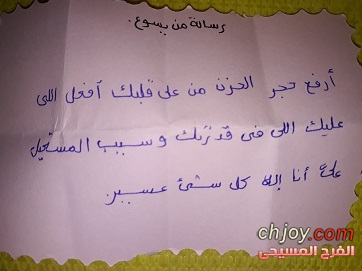 رسالة من يسوع.
أرفع حجر الحزن من على قلبك أفعل اللى
عليك اللى فى قدرتك وسيب المستحيل
علىَّ أنا إله كل شئ عسير.
chjoy.com
الفرح المسيحى